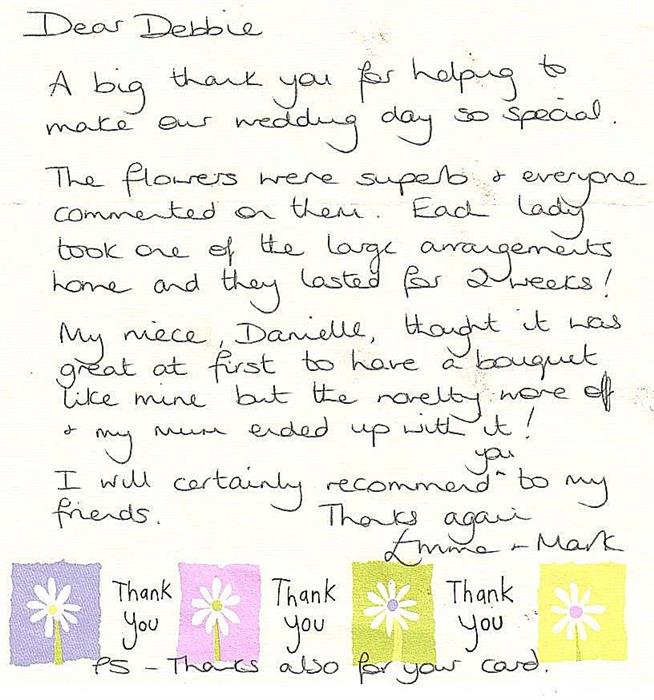 Dear Debbie
A big thank you for helping to
make our wedding day so special.
The flowers were superb & everyone
commented on them. Each lady
took one of the large arrangements
home and they lasted for 2 weeks!
My niece, Danielle, thought it was
great at first to have a bouquet
like mine but the novelty wore off
& my mum ended up with it!
I will certainly recommend ^you to my
friends. Thanks again
Emma & Mark
Thank you Thank you Thank you
PS - Thanks also for your card.